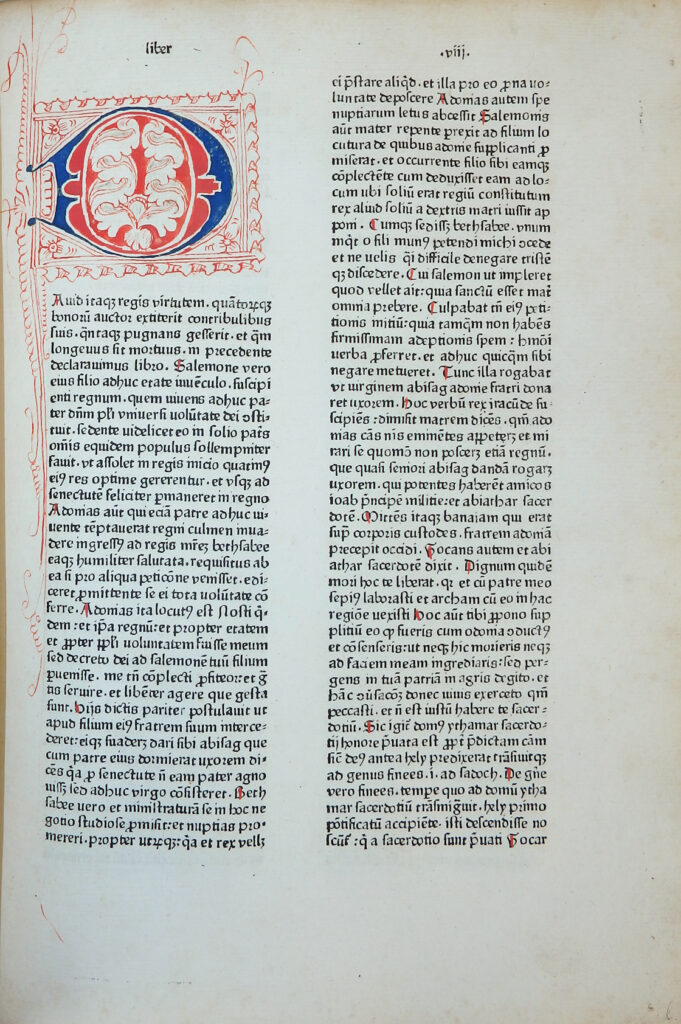 liber
.viij.
D
Auid itaqꝫ regis virtutem. quātorꝫqꝫ
bonorū auctor extiterit contribulibus
suis. qn̄taqꝫ pugnans gesserit. et qm̄
longeuus sit mortuus. in precedente
declarauimus libro. Salemone vero
eius filio adhuc etate iuuēculo. suscipi
enti regnum. quem viuens adhuc pa-
ter dn̄m pl'i vniuersi volūtate dei ꝯsti-
tuit. sedente videlicet eo in solio patꝭs
om̄is equidem populus sollempniter
fauit. vt assolet in regis inicio quatinꝰ
eiꝰ res optime gererentur. et vsqꝫ ad
senectutē feliciter ꝑmaneret in regno
Adomas aūt qui eciā patre adhuc ui-
uente tēptauerat regni culmen inua-
dere ingressꝰ ad regis mr̄eꝫ bethsabee
eaqꝫ humiliter salutata. requisitus ab
ea si pro aliqua peticōne venisset. edi-
ceret ꝓmittente se ei tota volūtate cō
ferre. Adomas ita locutꝰ est Nosti q̄-
dem: et ip̄a regnū: et propter etatem
et ꝓpter ppl'i voluntatem fuisse meum
sed decreto dei ad salemonē tuū filium
ꝑuenisse. me tn̄ cōplecti ꝓfiteor: et ḡ
tis seruire. et libēter agere que gesta
sunt. Hijs dictis pariter postulauit ut
apud filium eiꝰ fratrem suum interce-
deret: eiqꝫ suaderꝫ dari sibi abisag que
cum patre eius dormierat uxorem di-
cēs q̄a ꝓ senectute n̄ eam pater agno
uissꝫ sed adhuc virgo cōsisteret. Beth
sabee vero et ministraturā se in hoc ne
gotio studiose ꝓmisit: et nuptias pro-
mereri. propter utrꝫqꝫ: q̄a et rex vellꝫ
ei p̄stare aliqd̄. et illa pro eo ꝓna uo-
luntate deposcere Adomas autem spe
nuptiarum letus abcessit Salemonis
aūt mater repente ꝑrexit ad filium lo
cutura de quibus adome supplicanti ꝓ
miserat. et occurrente filio sibi eamqꝫ
cōplectēte cum deduxisset eam ad lo-
cum ubi soliū erat regiū constitutum
rex aliud soliū a dextris matri iussit ap
poni. Cumqꝫ sedissꝫ bethsabee. vnum
inq̄t o fili munꝰ petendi michi ꝯcede
et ne velis qi difficile denegare tristē
qꝫ discedere. Cui salemon ut impleret
quod vellet ait: quia sanctū esset mat̄
omnia prebere. Culpabat tn̄ eiꝰ peti-
tionis initiū: quia tamqm̄ non habēs
firmissimam adeptionis spem: hm̄oi
verba ꝓferret. et adhuc quicqm̄ sibi
negare metueret. Tunc illa rogabat
vt virginem abisag adome fratri dona
ret uxorem. Hoc verbū rex iracūde su-
scipiēs: dimisit matrem dicēs. qm̄ ado
mas cās nīs eminētes appeterꝫ et mi
rari se quomō non poscerꝫ etiā regnū.
que quasi semori abisag dandā rogarꝫ
uxorem. qui potentes haberēt amicos
ioab p̄ncipē militie: et abiathar sacer
dotē. Mittēs itaqꝫ banaiam qui erat
sup̄ corporis custodes. fratrem adomā
precepit occidi. Vocans autem et abi
athar sacerdotē dixit. Dignum quidem
mori hoc te liberat. qr et cū patre meo
sepiꝰ laborasti et archam cū eo in hac
regiōe uexisti Hoc aūt tibi ꝓpono sup
plitiū eo ꝙ fueris cum odomia ꝯductꝰ
et cōsenseris: ut neqꝫ hic morieris neqꝫ
ad faciem meam ingrediaris: sed per-
gens in tuā patriā in agris degito. et
hāc donec uiuis exerceto qm̄
peccasti. et n̄ est iustū habere te sacer-
dotiū. Sic igit̄ domꝰ ythamar sacerdo-
tij honore p̄uata est ꝓpt̄ p̄dictam cām
sic̄ deꝰ antea hely predixerat trāsiuitqꝫ
ad genus finees. i. ad sadoch. De gn̄e
vero finees. tempe quo ad domū ytha
mar sacerdotiū trāsmig̅uit. hely primo
pōntificatū accipiēte. isti descendisse no
scūt̄: q̄ a sacerdotio sunt p̄uati Vocar